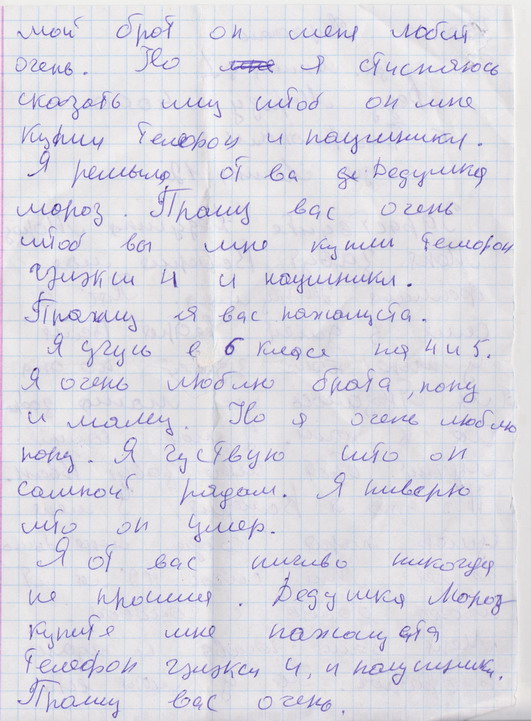 мой брат он меня любит
очень. Но мне я стисняюсь
сказать иму штоб он мне
купил телефон и наушники.
Я решыла от ва де Дедушка
мороз. Прашу вас очень
штоб вы мне купили телефон
гэлэкси 4 и наушники.
Прашу я вас пажалуста.
Я учусь в 6 класе на 4 и 5.
Я очень люблю брата, папу
и маму. Но я очень люблю
папу. Я чуствую што он
самной рядам. Я ниверю
што он умер.
Я от вас ничиво никогда
не прасила. Дедушка Мороз
купите мне пажалуста
Телефон гэлэкси 4, и наушники.
Прашу вас очень.